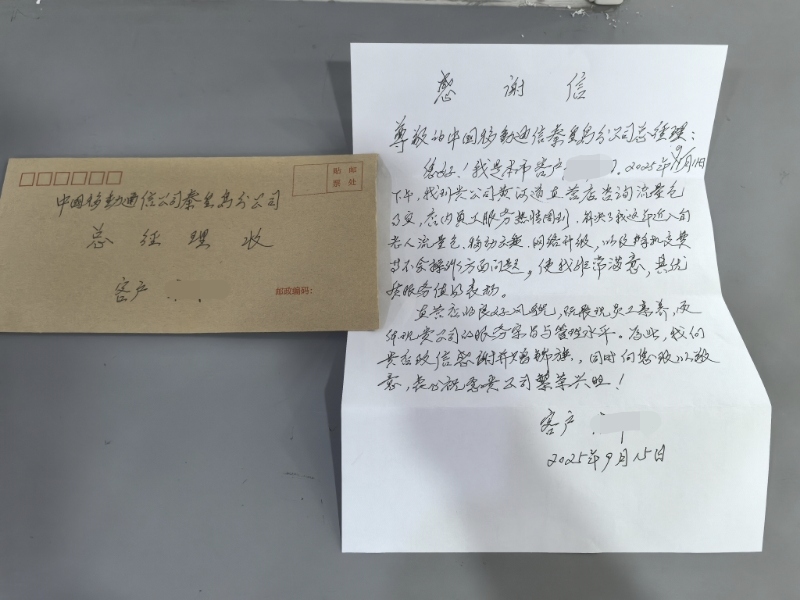 贴邮
票处
中国移动通信公司秦皇岛分公司
总经理收
客户
邮政编码：
感谢信
尊敬的中国移动通信秦皇岛分公司总经理：
您好！我是本市客户 2025年9月11日
下午，我到贵公司黄河道直营店咨询流量包
事宜，店内员工服务热情周到，解决了我这年近八旬
老人流量包、移动云盘、网络升级，以及手机交费
等不会操作方面问题，使我非常满意，其优
质服务值得表扬。
直营店的良好风貌，既展现员工素养，更
体现贵公司的服务宗旨与管理水平。为此，我们
致信感谢并赠锦旗，同时向您致以敬
意，衷心祝愿贵公司繁荣兴旺！
客户
2025年9月15日